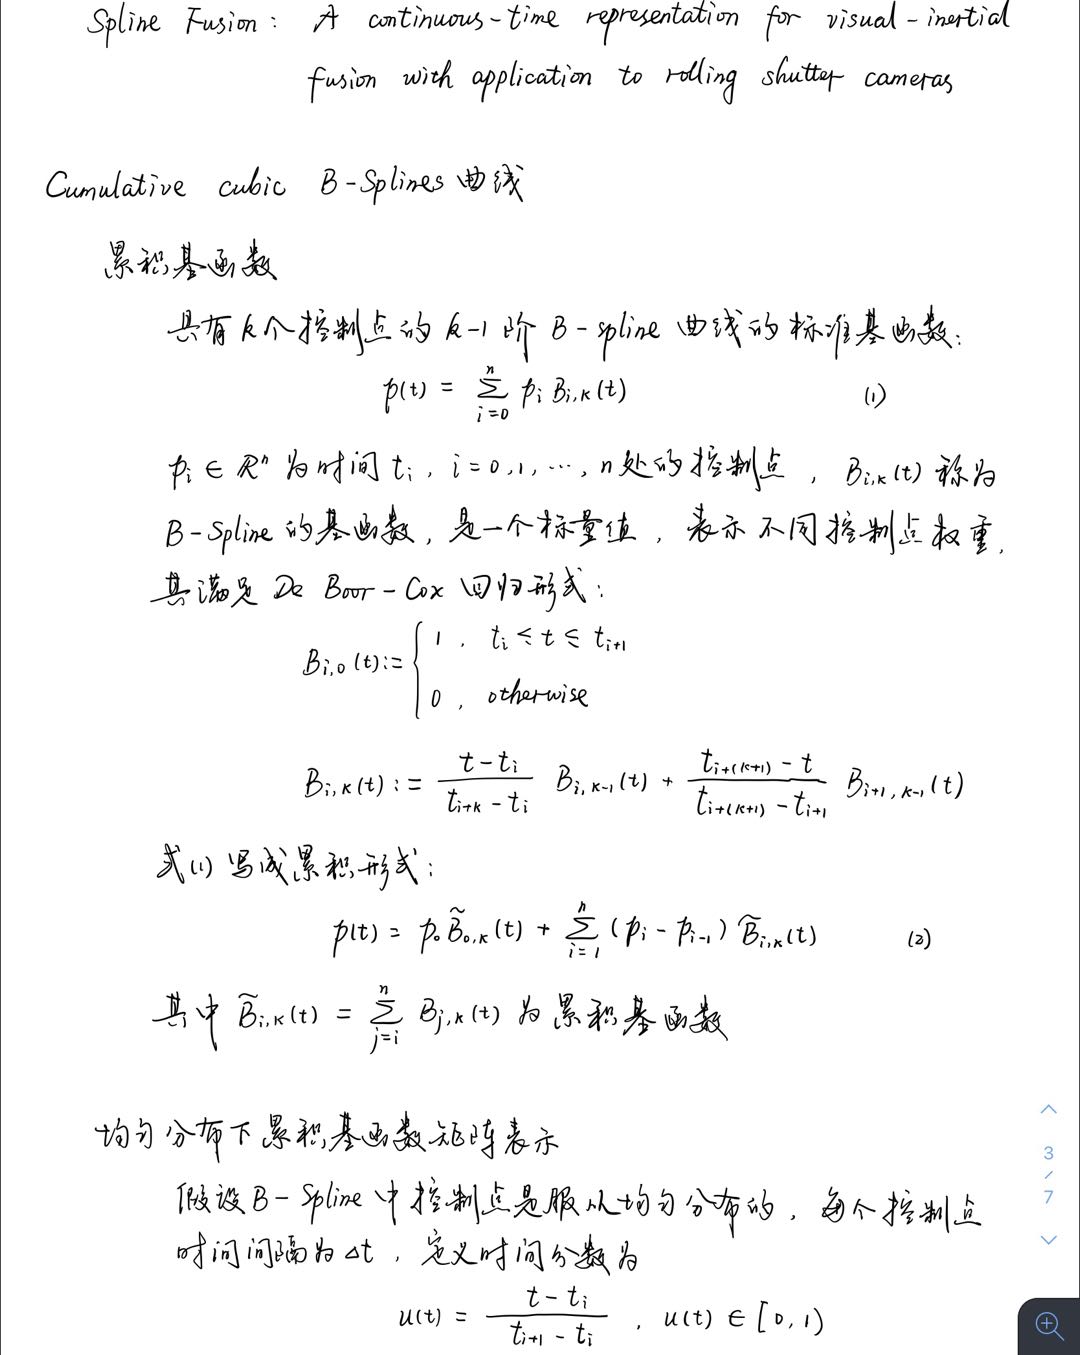 Spline Fusion: A continuous-time representation for visual-inertial
fusion with application to rolling shutter cameras
Cumulative cubic B-Splines 曲线
累积基函数
具有k个控制点的k-1阶 B-spline 曲线的标准基函数:
p(t) = Σ_{i=0}^{n} p_i B_{i,k}(t) (1)
p_i ∈ R^n 为时间 t_i, i=0,1,…,n处的控制点, B_{i,k}(t)称为
B-Spline的基函数,是一个标量值,表示不同控制点权重,
其满足 De Boor-Cox 回归形式:
B_{i,0}(t):= { 1, t_i ≤ t ≤ t_{i+1}
0, otherwise
B_{i,k}(t):= (t-t_i)/(t_{i+k}-t_i) B_{i,k-1}(t) + (t_{i+(k+1)}-t)/(t_{i+(k+1)}-t_{i+1}) B_{i+1,k-1}(t)
式(1)写成累积形式:
p(t) = p_0 B̃_{0,k}(t) + Σ_{i=1}^{n} (p_i - p_{i-1}) B̃_{i,k}(t) (2)
其中 B̃_{i,k}(t) = Σ_{j=i}^{n} B_{j,k}(t) 为累积基函数
均匀分布下累积基函数矩阵表示
假设B-Spline中控制点是服从均匀分布的,每个控制点
时间间隔为Δt,定义时间分数为
u(t) = (t-t_i)/(t_{i+1}-t_i), u(t) ∈ [0,1)
3
/
7